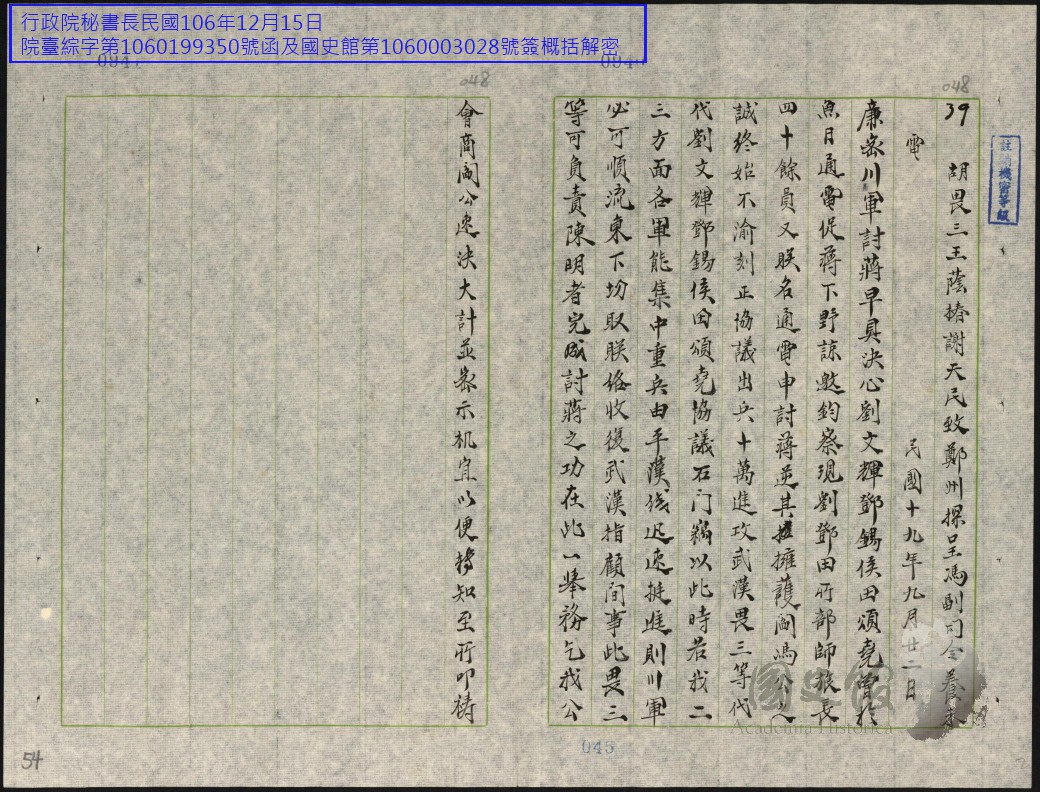 行政院秘書長民國106年12月15日
院臺綜字第1060199350號函及國史館第1060003028號簽概括解密
048
048
39 胡畏三王蔭椿謝天民致鄭州探呈馮副司令養未
電 民國十九年九月廿二日
廉密川軍討蔣早具決心劉文輝鄧錫侯田頌堯曾於
魚日通電促蔣下野諒邀鈞察現劉鄧田所部師旅長
四十餘員又联名通電申討蔣逆其擁護閻馮公之
誠終始不渝刻正協議出兵十萬進攻武漢畏三等代
代劉文輝鄧錫侯田頌堯協議石门竊以此時若我二
三方面各軍能集中重兵由平漢綫迅速挺進則川軍
必可順流東下切取联络收復武漢指顧间事此畏三
等可負責陳明者完成討蔣之功在此一舉務乞我公
會商閻公速決大計並密示机宜以便轉知至所叩祷
機密等級
國史館
Academia Historica
045
54